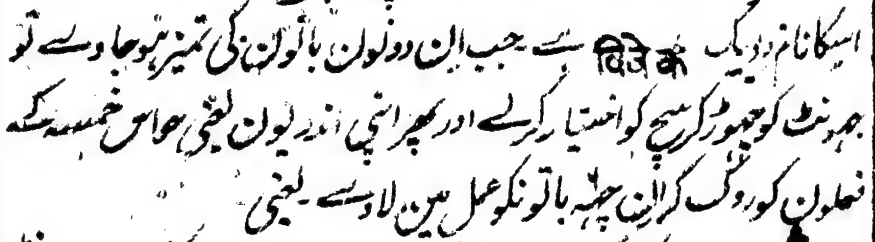 اسکا نام ویبیک विवेक ہے ۔ جب ان دونون باتون کی تمیز ہو جاوے تو
جہونٹ کو چہوڑ کر سچ کو اختیار کرلے اور پھر اپنی اندریون یعنی حواس خمسہ کے
فعلون کو روک کر ان چہہ باتونکو عمل مین لاوے ۔ یعنی